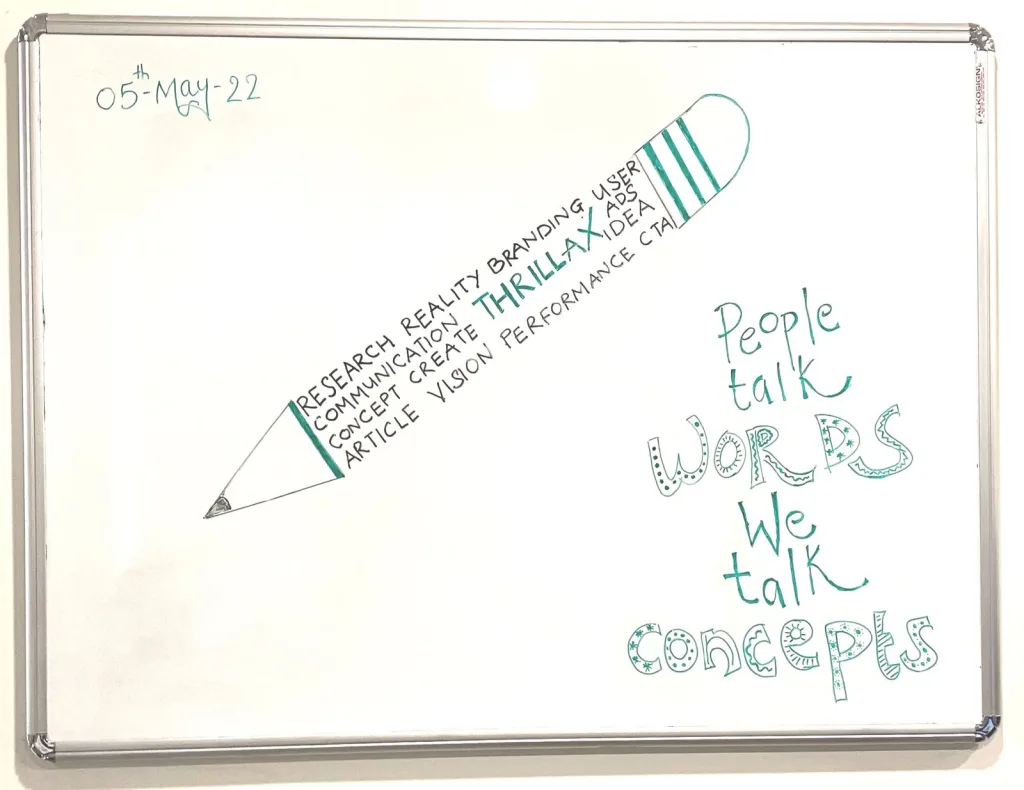 05th-May-22
RESEARCH REALITY BRANDING USER
COMMUNICATION THRILLAX ADS
CONCEPT CREATE IDEA
ARTICLE VISION PERFORMANCE CTA
People
talk
WORDS
We
talk
concepts
ALKOSIGN